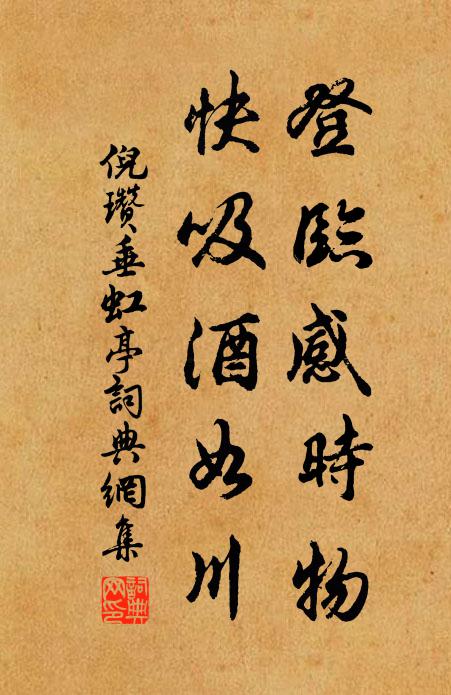 登臨感時物
快吸酒如川
倪瓚垂虹亭詞典網集
詞典
网印